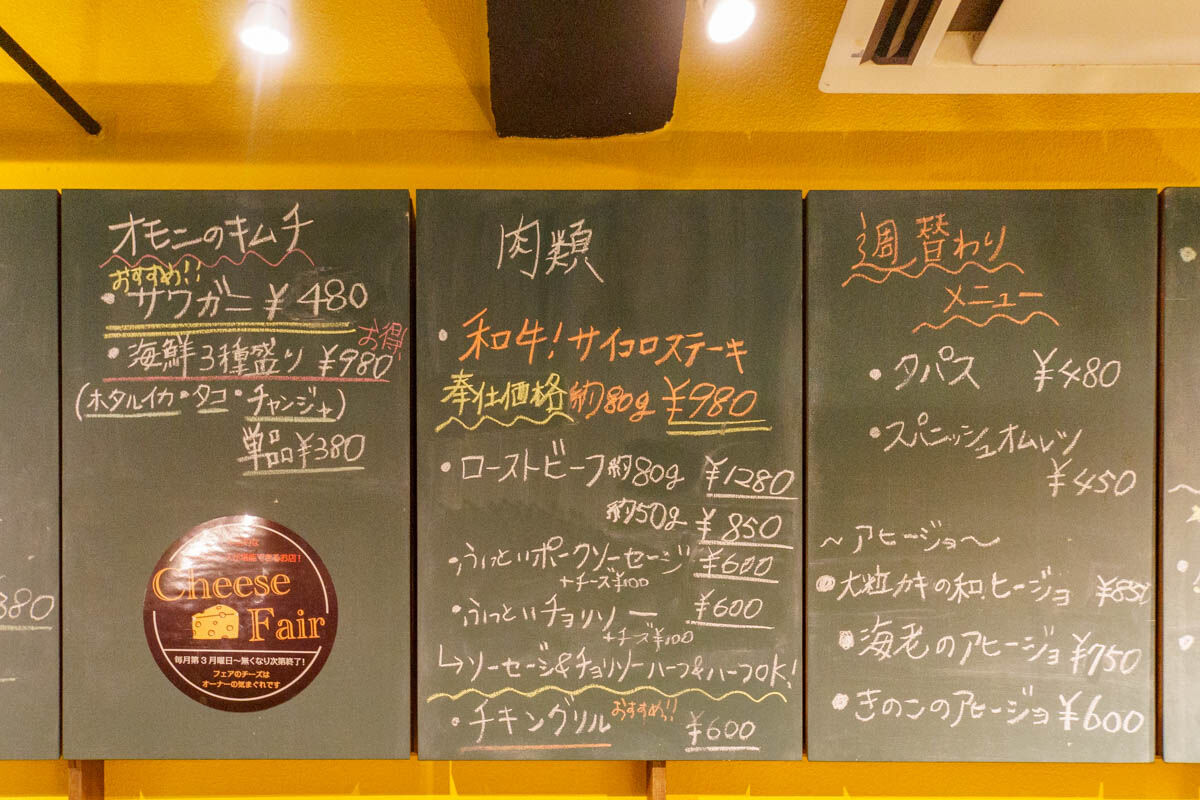 380
オモニのキムチ
おすすめ!!
・サワガニ ¥480
お得!
・海鮮3種盛り ¥980
(ホタルイカ・タコ・チャンジャ)
単品¥380
Cheese
Fair
毎月第3月曜日〜無くなり次第終了!
フェアのチーズは
オーナーの気まぐれです
肉類
・和牛!サイコロステーキ
奉仕価格 約80g ¥980
・ローストビーフ 約80g ¥1280
約50g ¥850
・ふっといポークソーセージ ¥600
+チーズ¥100
・ふっといチョリソー ¥600
+チーズ¥100
↳ソーセージ&チョリソーハーフ&ハーフOK!
・チキングリル おすすめ!! ¥600
週替わり
メニュー
・タパス ¥480
・スパニッシュオムレツ
¥450
〜アヒージョ〜
・大粒カキの和ヒージョ ¥850
・海老のアヒージョ ¥750
・きのこのアヒージョ ¥600